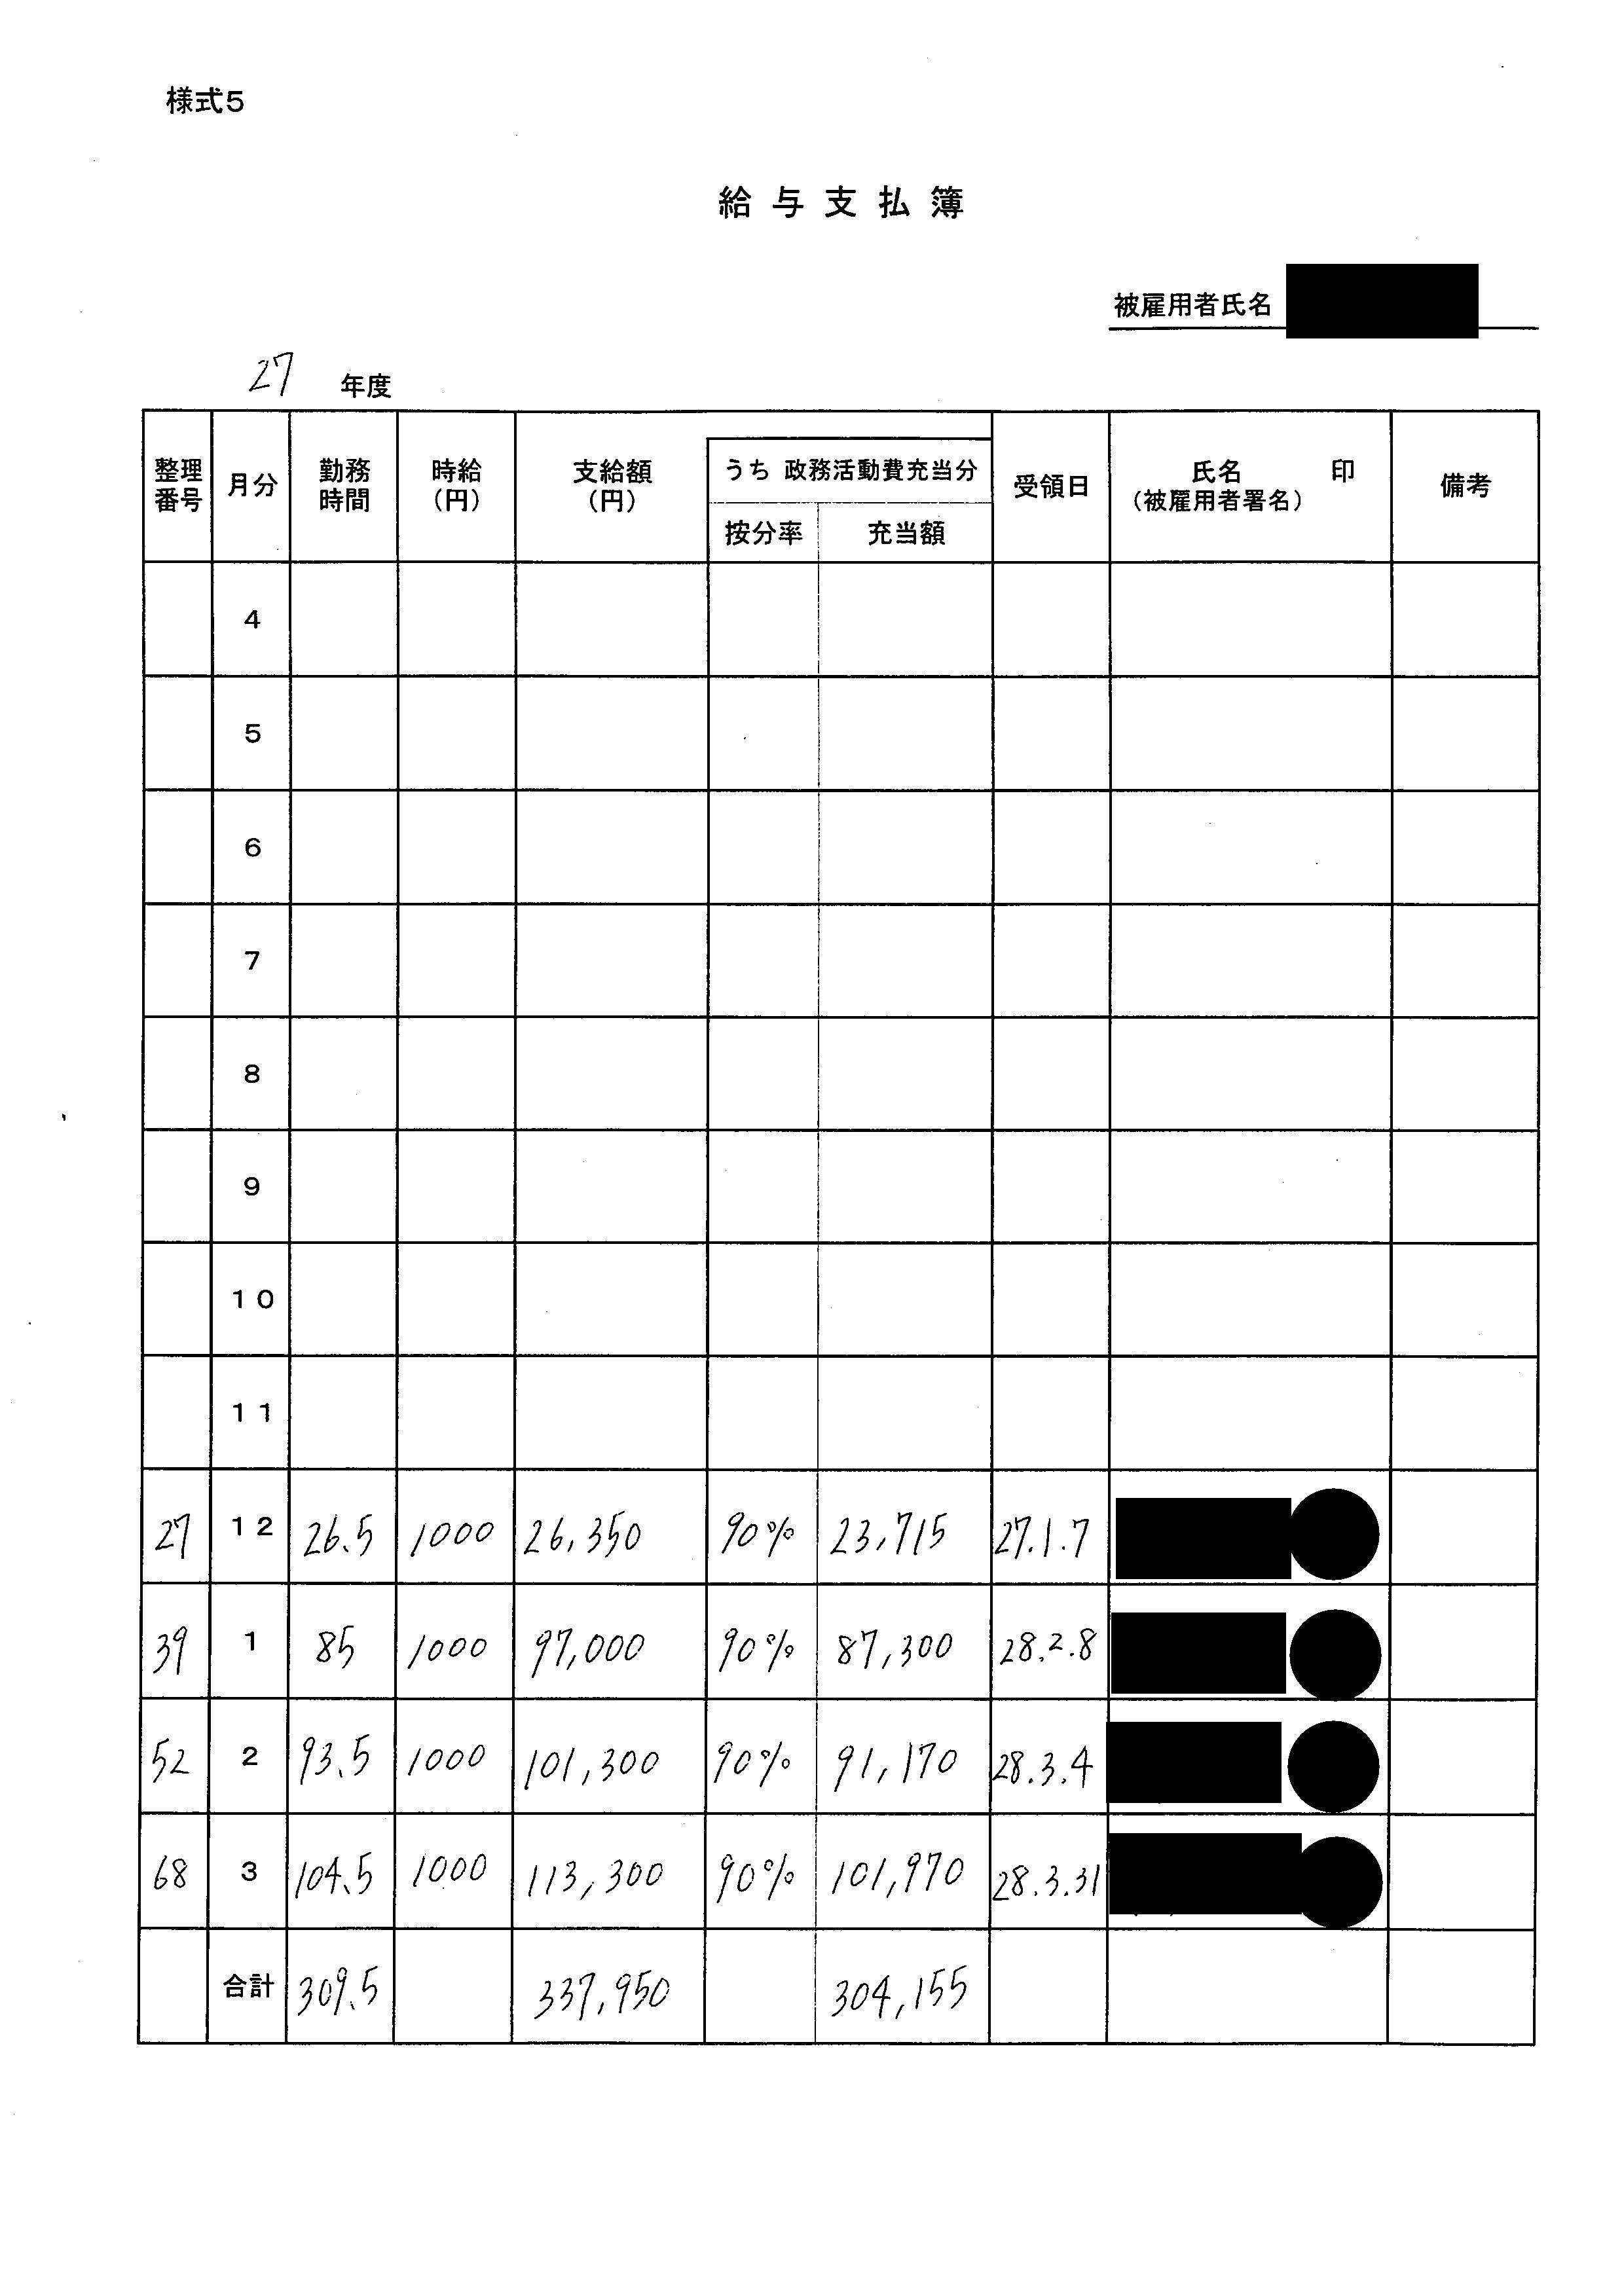 様式5
給与支払簿
被雇用者氏名
27 年度
整理番号 月分 勤務時間 時給(円) 支給額(円) うち 政務活動費充当分 按分率 充当額 受領日 氏名 印 (被雇用者署名) 備考
4
5
6
7
8
9
10
11
27 12 26.5 1000 26,350 90% 23,715 27.1.7
39 1 85 1000 97,000 90% 87,300 28.2.8
52 2 93.5 1000 101,300 90% 91,170 28.3.4
68 3 104.5 1000 113,300 90% 101,970 28.3.31
合計 309.5 337,950 304,155